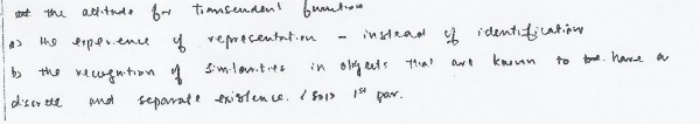 the attitude for transcendent function
a) the experience of representation - instead of identification
b) the recognition of similarities in objects that are known to have a
discrete and separate existence. 1st par.